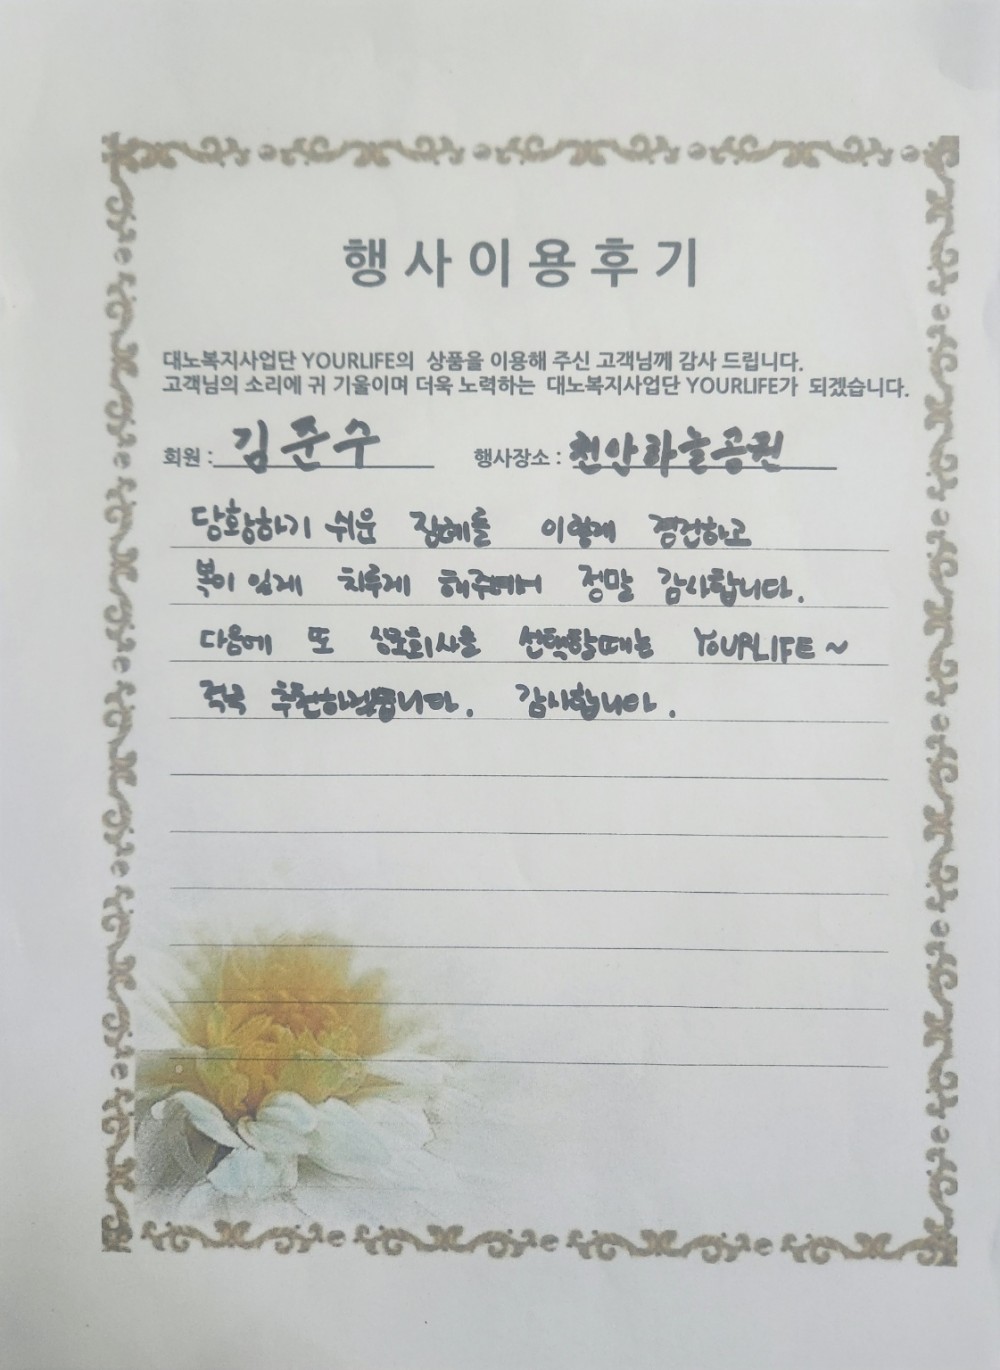 행사이용후기
대노복지사업단 YOURLIFE의 상품을 이용해 주신 고객님께 감사 드립니다.
고객님의 소리에 귀 기울이며 더욱 노력하는 대노복지사업단 YOURLIFE가 되겠습니다.
회원 : 김준수 행사장소 : 천안하늘공원
당황하기 쉬운 장례를 이렇게 경건하고
복이 있게 치루게 해주셔서 정말 감사합니다.
다음에 또 상조회사를 선택할때는 YOURLIFE~
적극 추천하겠습니다. 감사합니다.